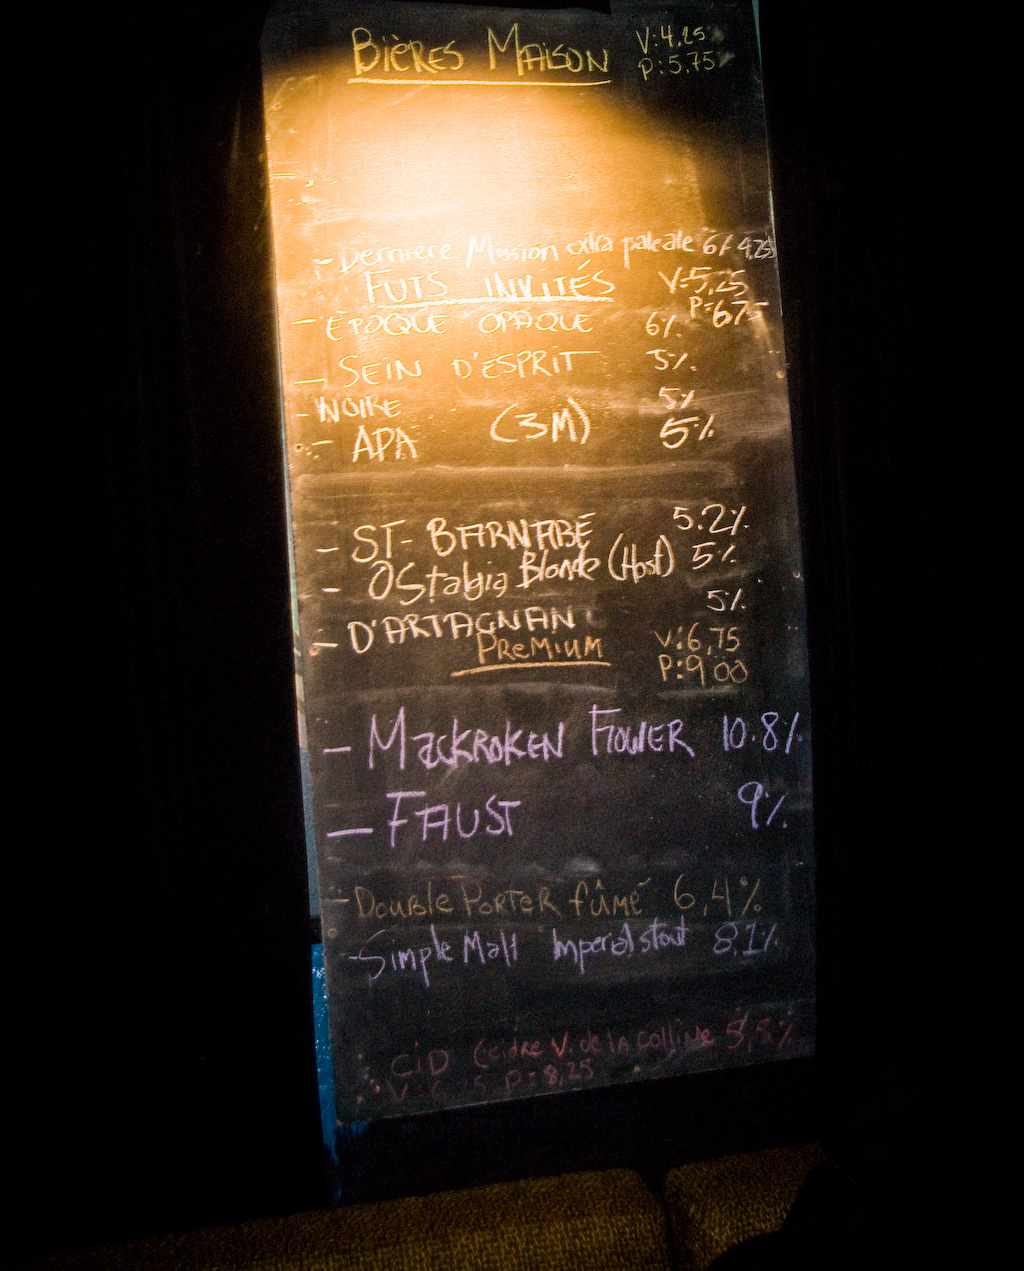 BIÈRES MAISON V: 4,25
P: 5,75
- Dernière Mission extra pale ale 6% 4,25$
FUTS INVITÉS V=5,25
P=6,75
- ÉPOCQUE OPAQUE 6%
- SEIN D'ESPRIT 5%
- NOIRE 5%
- APA (3M) 5%
- ST-BARNABÉ 5.2%
- OStalgia Blonde (Host) 5%
- D'ARTAGNAN 5%
PREMIUM V: 6,75
P: 9,00
- MACKROKEN FLOWER 10.8%
- FAUST 9%
- DOUBLE PORTER fûmé 6,4%
- Simple Malt Imperial stout 8,1%
CiD (cidre V. de la colline 5,5%
P: 8,25